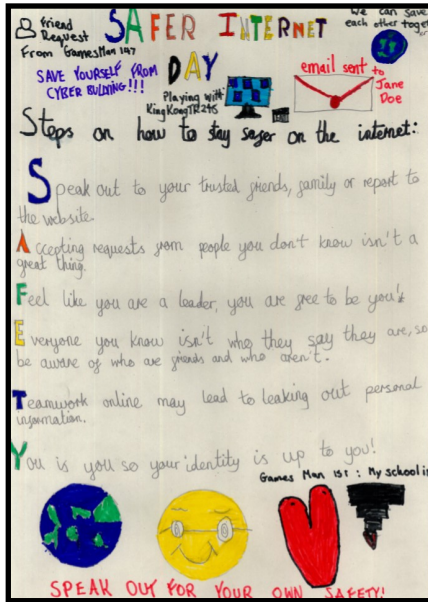 Friend Request
From GamesMan 147
SAFER INTERNET
DAY
We can save
each other toget
SAVE YOURSELF FROM
CYBER BULLYING!!!
Playing with
KingKongTR245
email sent to
Jane
Doe
Steps on how to stay safer on the internet:
Speak out to your trusted friends, family or report to
the website.
Accepting requests from people you don't know isn't a
great thing.
Feel like you are a leader, you are free to be you!
Everyone you know isn't who they say they are, so
be aware of who are friends and who aren't.
Teamwork online may lead to leaking out personal
information.
You is you so your identity is up to you!
Games Man : My school i
SPEAK OUT FOR YOUR OWN SAFETY!